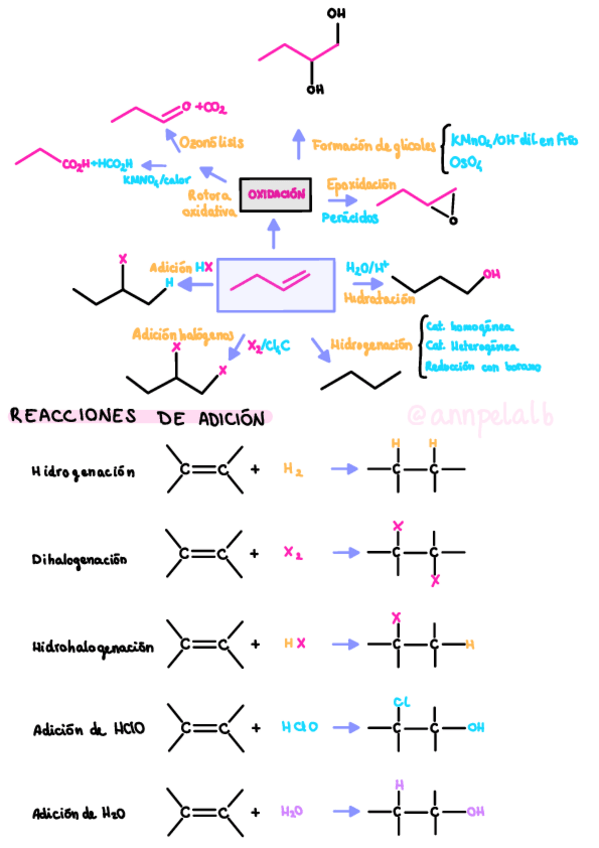 OH
OH
O +CO2
Ozonólisis
Formación de glicoles
KMnO4/OH- dil en frío
OsO4
CO2H+HCO2H
KMNO4/calor
Rotura oxidativa
OXIDACIÓN
Epoxidación
Perácidos
O
X
H
Adición HX
H2O/H+
Hidratación
OH
Adición halógenos
X2/Cl4C
X
X
Hidrogenación
Cat. homogénea
Cat. Heterogénea
Reducción con borano
REACCIONES DE ADICIÓN
@annpelalb
Hidrogenación C C + H2 H H C C
Dihalogenación C C + X2 X C C X
Hidrohalogenación C C + HX X C C H
Adición de HClO C C + HClO Cl C C OH
Adición de H2O C C + H2O H C C OH